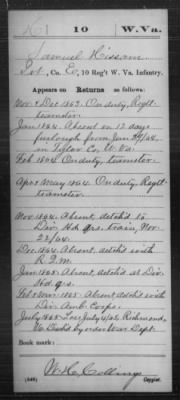 H 10 W.Va.
Samuel Hissom
Pvt., Co. C, 10 Reg't W. Va. Infantry.
Appears on Returns as follows:
Nov & Dec 1863. On duty, Regtl
teamster.
Jan 1864. Absent on 12 days
furlough from Jan 24/64
in Tyler Co. W. Va.
Feb 1864 On duty, teamster.
Apr & May 1864. On duty, Regtl
teamster.
Nov. 1864. Absent, detch'd to
Div. Hd. Qrs. train, Nov.
22/64.
Dec. 1864. Absent, detch'd with
Jan. 1865. Absent, detch'd at Div.
Hd. qrs.
Feb & Mar. 1865. Absent, detch'd with
Div. Amb. Corps.
July 1865. Richmond,
Va. Disch'd by order War Dept.
Book mark:
W. H. Collins
(546) Copyist.